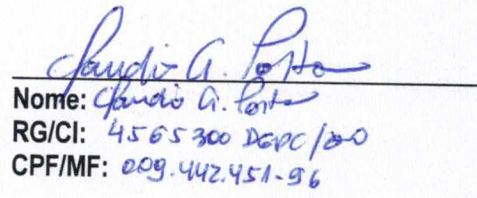 Claudio G. Porto
Nome: Claudio G. Porto
RG/CI: 4565300 DGPC/GO
CPF/MF: 009.442.451-96